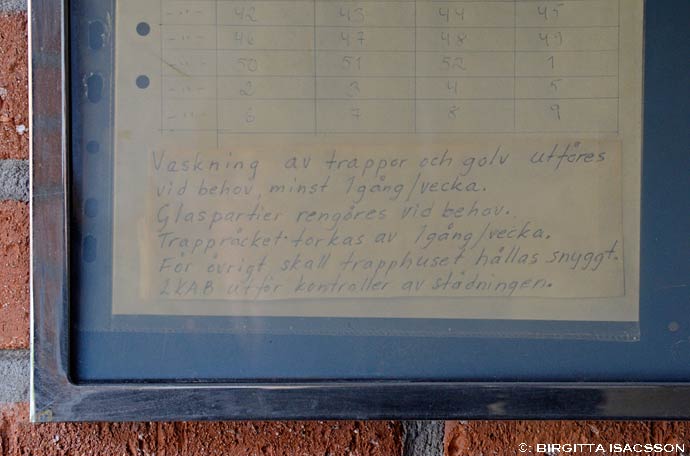 -"- 42 43 44 45
-"- 46 47 48 49
-"- 50 51 52 1
-"- 2 3 4 5
-"- 6 7 8 9
Vaskning av trappor och golv utföres
vid behov, minst 1gång/vecka.
Glaspartier rengöres vid behov.
Trappräcket torkas av 1gång/vecka.
För övrigt skall trapphuset hållas snyggt.
LKAB utför kontroller av städningen.
©: BIRGITTA ISACSSON